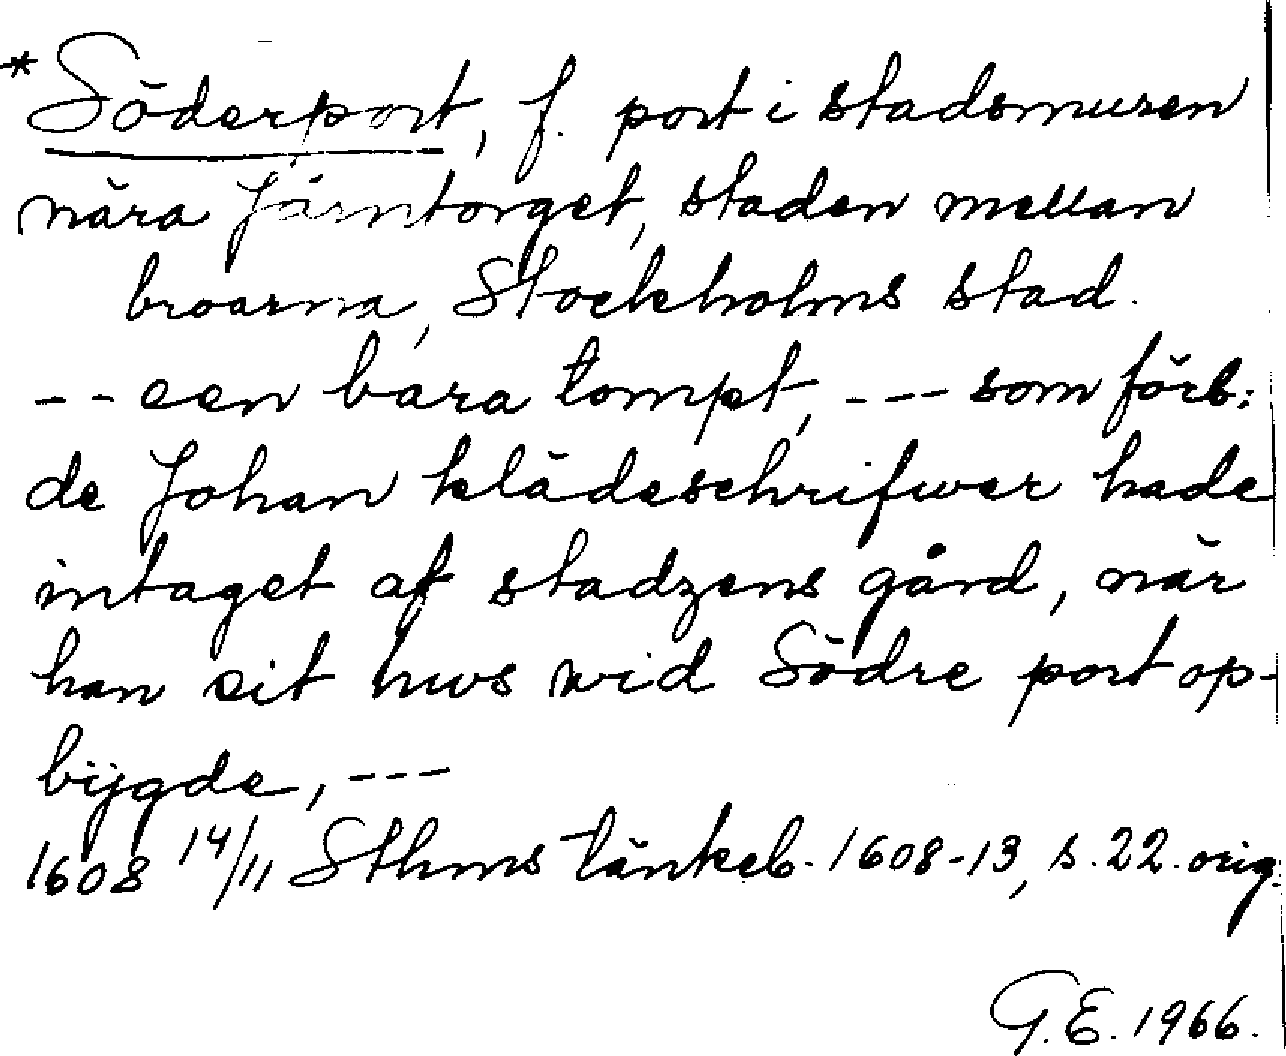 *Söderport, f. port i stadsmuren
nära Järntorget, staden mellan
broarna, Stockholms stad.
-- een bara tompt, --- som förb:
de Johan klädeschrifwer hade
intaget af stadzens gård, när
han sit hws wid Södre port op-
bijgde, ---
1608 14/11 Sthms tänkeb. 1608-13, s. 22. orig.
G.E. 1966.